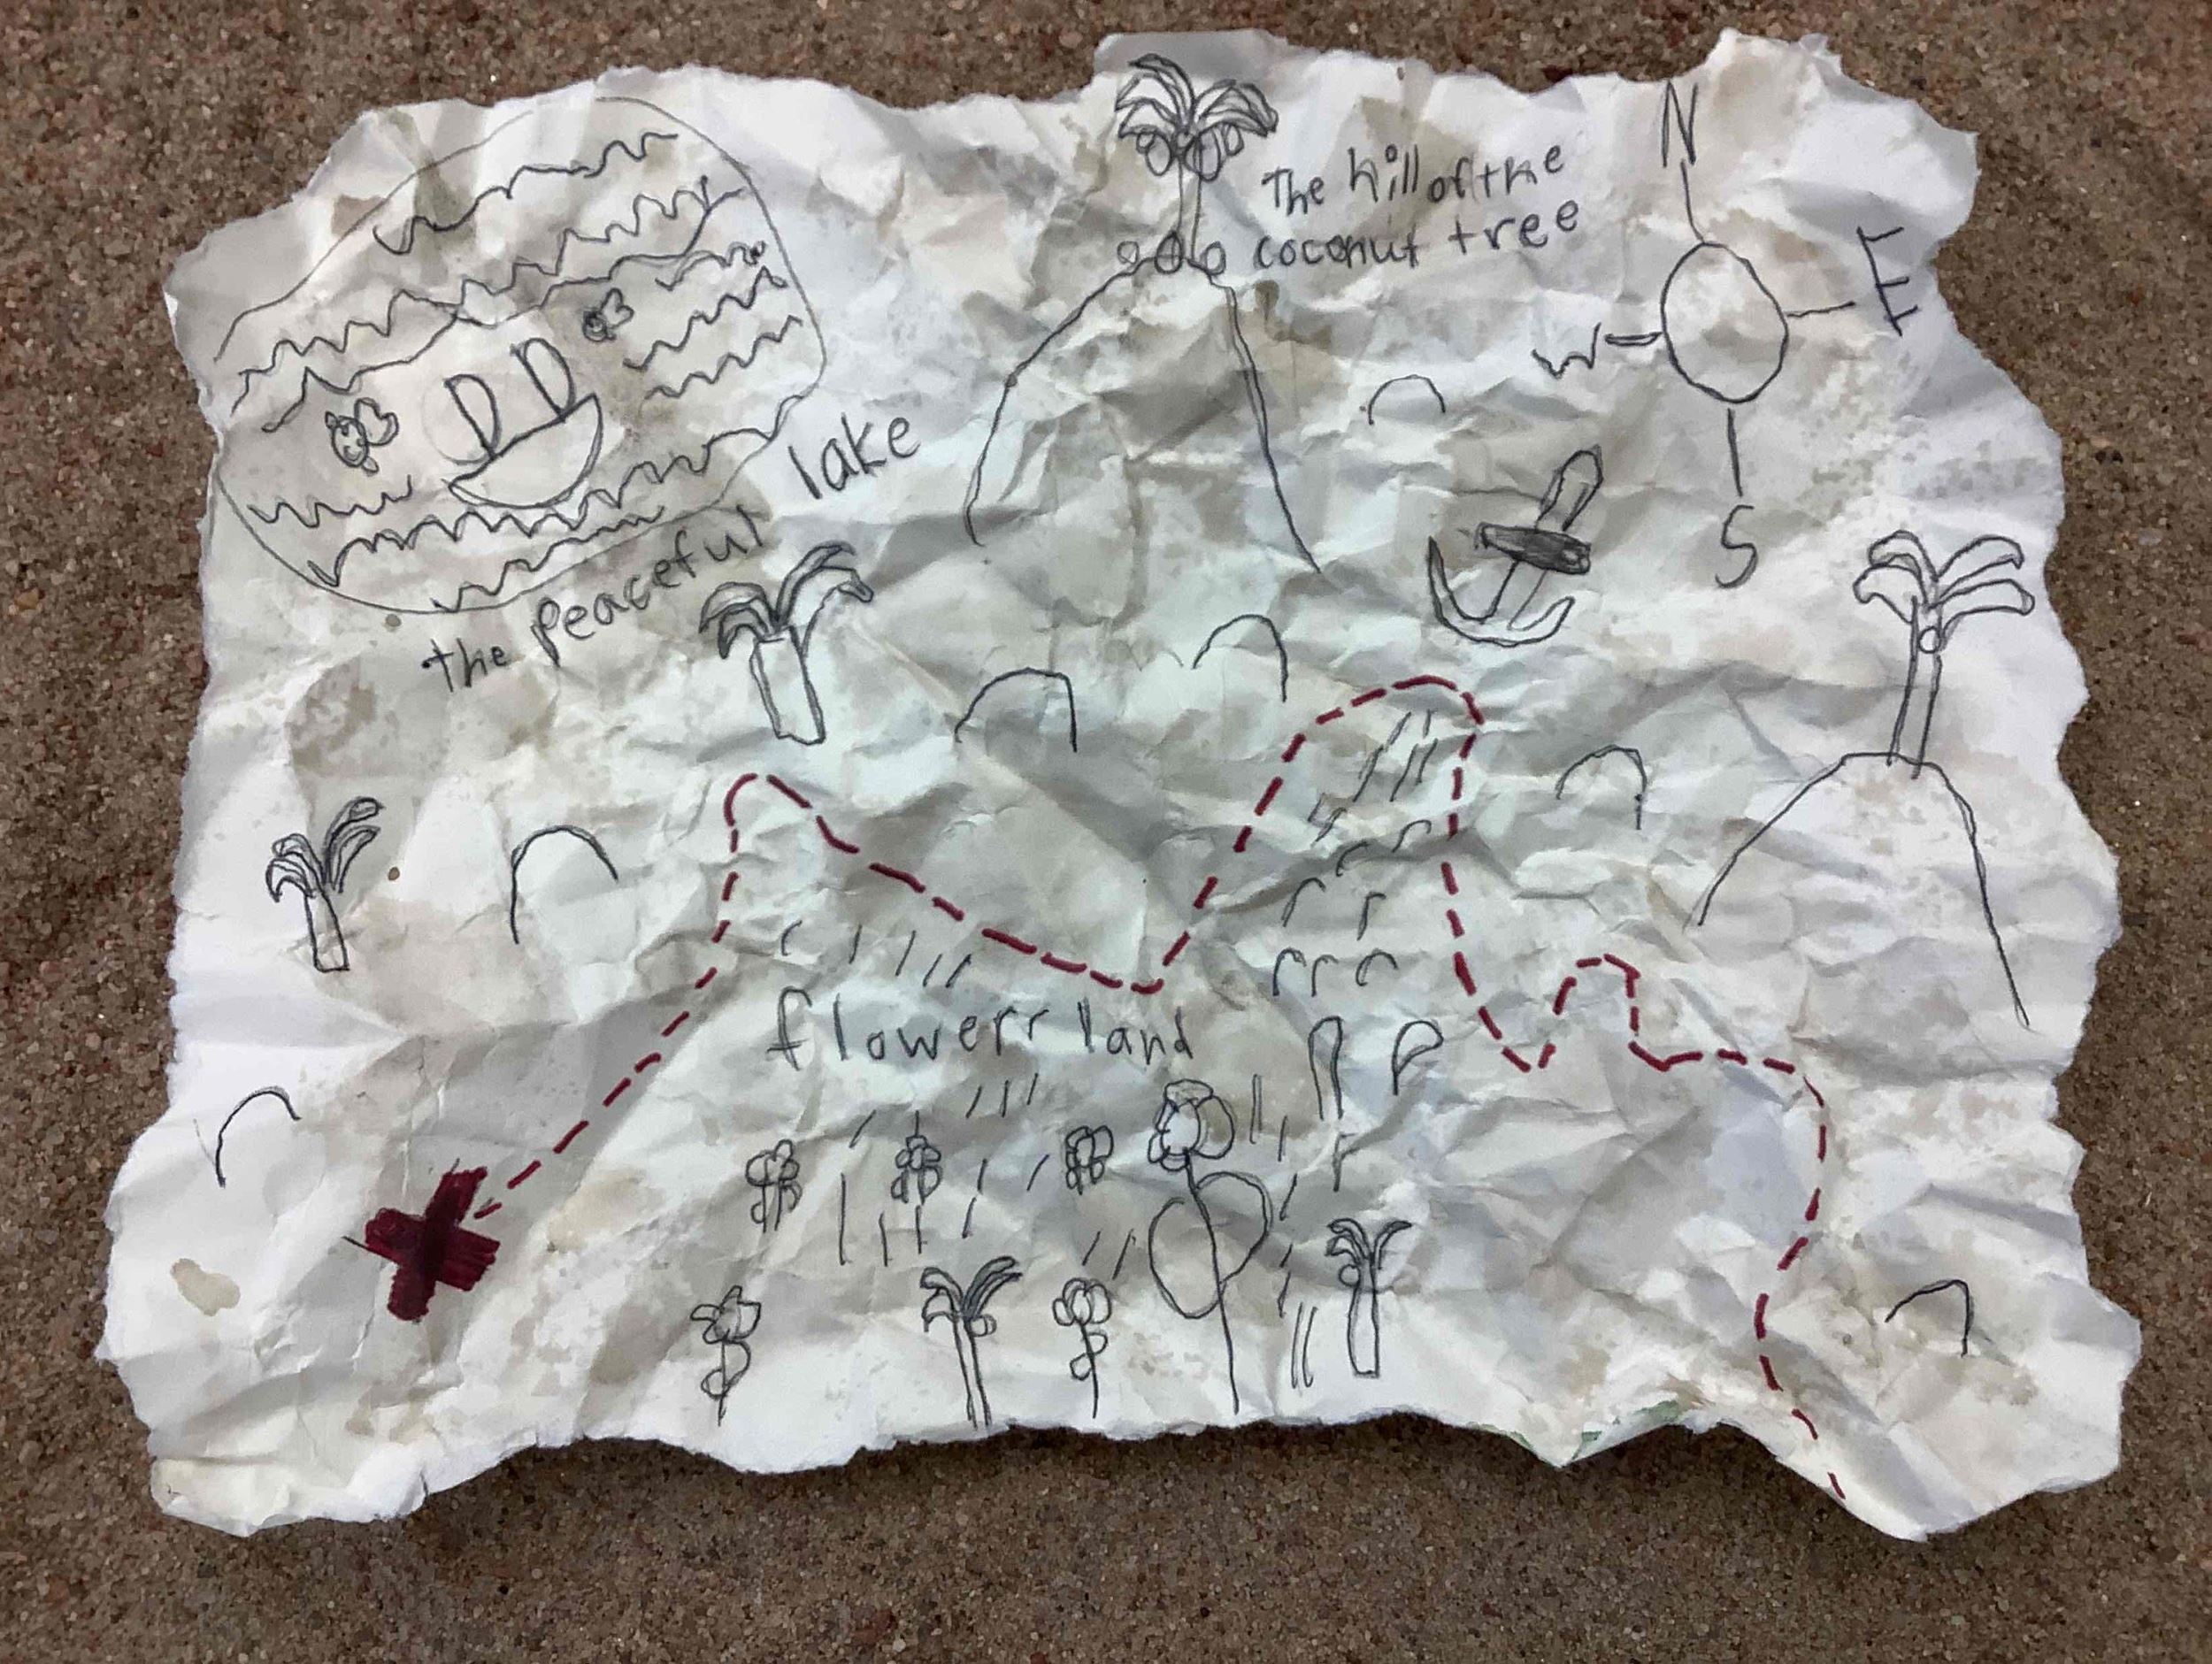 the peaceful lake
The hill of the
coconut tree
N
E
W
S
flowerr land